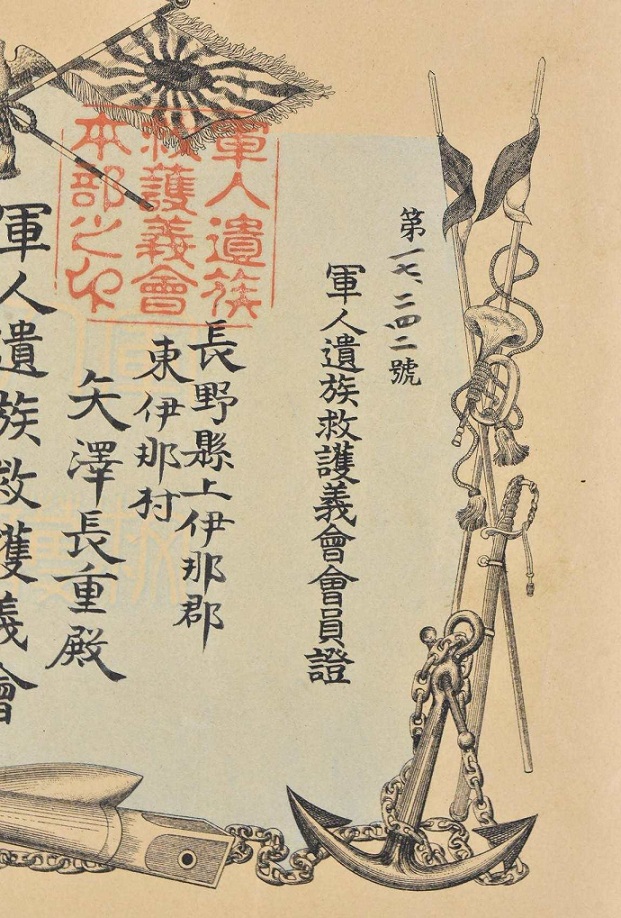 第一七、二四二號
軍人遺族救護義會會員證
軍人遺族
救護義會
本部之印
長野縣上伊那郡
東伊那村
矢澤長重殿
軍人遺族救護義會